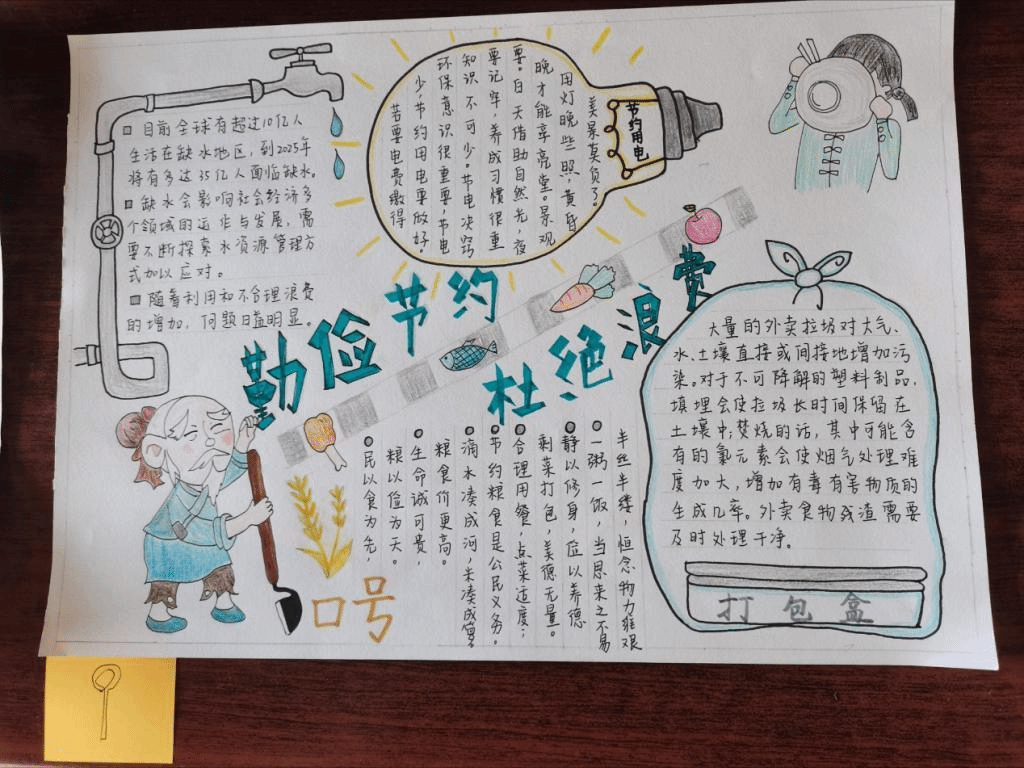 勤俭节约
杜绝浪费
目前全球有超过10亿人
生活在缺水地区，到2025年
将有多过35亿人面临缺水。
缺水会影响社会经济多
个领域的运作与发展，需
要不断探索水资源管理方
式加以应对。
随着利用和不合理浪费
的增加，问题日益明显。
节约用电
美景莫负了。
用灯晚些照，黄昏
晚才能享亮堂。景观
要。白天借助自然光，夜
要记牢，养成习惯很重
知识不可少。节电决窍
环保意识很重要，节电
少。节约用电要做好。
苦要电费缴得
大量的外卖垃圾对大气、
水、土壤直接或间接地增加污
染。对于不可降解的塑料制品，
填埋会使垃圾长时间保留在
土壤中；焚烧的话，其中可能含
有的氯元素会使烟气处理难
度加大，增加有毒有害物质的
生成几率。外卖食物残渣需要
及时处理干净。
打包盒
口号
民以食为先，
粮以俭为天。
生命诚可贵，
粮食价更高。
滴水凑成河，米凑成箩。
节约粮食是公民义务。
合理用餐，点菜适度；
剩菜打包，美德无量。
静以修身，俭以养德
一粥一饭，当思来之不易
半丝半缕，恒念物力维艰